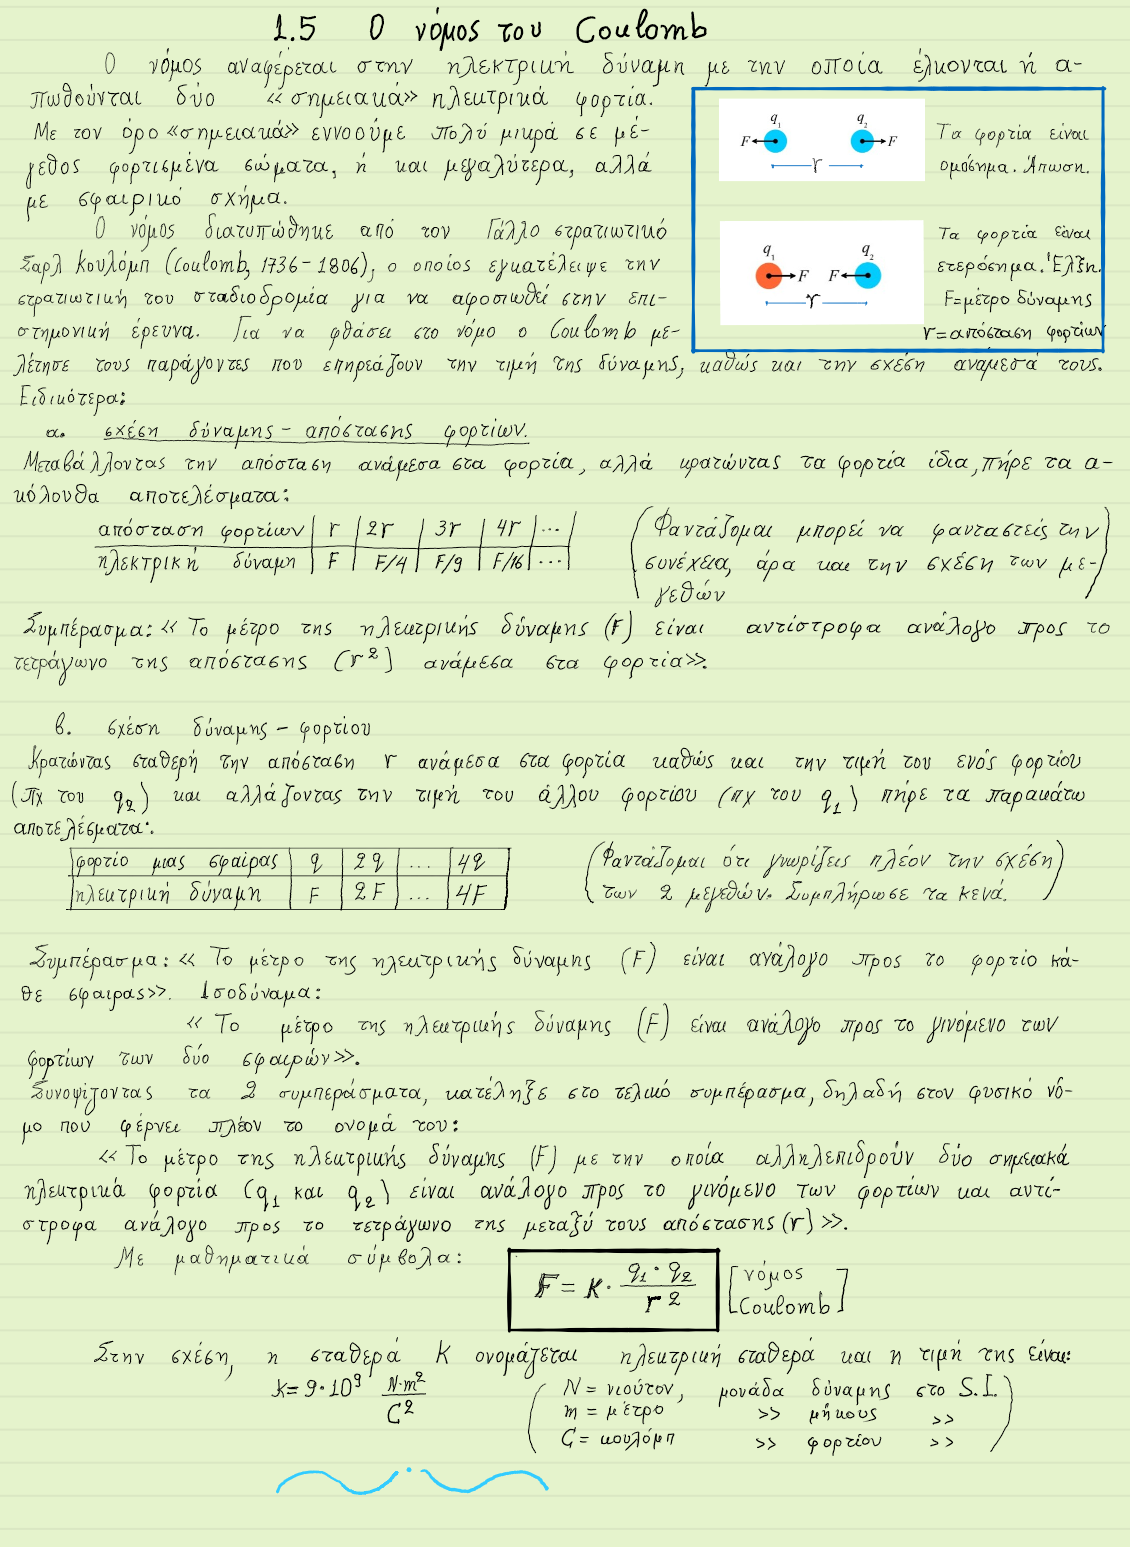 1.5 Ο νόμος του Coulomb
Ο νόμος αναφέρεται στην ηλεκτρική δύναμη με την οποία έλκονται ή α-
πωθούνται δύο «σημειακά» ηλεκτρικά φορτία.
Με τον όρο «σημειακά» εννοούμε πολύ μικρά σε μέ-
γεθος φορτισμένα σώματα, ή και μεγαλύτερα, αλλά
με σφαιρικό σχήμα.
Ο νόμος διατυπώθηκε από τον Γάλλο στρατιωτικό
Σαρλ Κουλόμπ (Coulomb, 1736-1806), ο οποίος εγκατέλειψε την
στρατιωτική του σταδιοδρομία για να αφοσιωθεί στην επι-
στημονική έρευνα. Για να φθάσει στο νόμο ο Coulomb με-
λέτησε τους παράγοντες που επηρεάζουν την τιμή της δύναμης, καθώς και την σχέση ανάμεσά τους.
q1 q2
F F
r
Τα φορτία είναι
ομόσημα. Άπωση.
q1 q2
F F
r
Τα φορτία είναι
ετερόσημα. Έλξη.
F=μέτρο δύναμης
r=απόσταση φορτίων
Ειδικότερα:
α. σχέση δύναμης - απόστασης φορτίων.
Μεταβάλλοντας την απόσταση ανάμεσα στα φορτία, αλλά κρατώντας τα φορτία ίδια, πήρε τα α-
κόλουθα αποτελέσματα:
απόσταση φορτίων r 2r 3r 4r ...
ηλεκτρική δύναμη F F/4 F/9 F/16 ...
(Φαντάζομαι μπορεί να φανταστείς την
συνέχεια, άρα και την σχέση των με-
γεθών)
Συμπέρασμα: «Το μέτρο της ηλεκτρικής δύναμης (F) είναι αντίστροφα ανάλογο προς το
τετράγωνο της απόστασης (r²) ανάμεσα στα φορτία».
β. σχέση δύναμης - φορτίου
Κρατώντας σταθερή την απόσταση r ανάμεσα στα φορτία καθώς και την τιμή του ενός φορτίου
(πχ του q2) και αλλάζοντας την τιμή του άλλου φορτίου (πχ του q1) πήρε τα παρακάτω
αποτελέσματα:
φορτίο μιας σφαίρας q 2q ... 4q
ηλεκτρική δύναμη F 2F ... 4F
(Φαντάζομαι ότι γνωρίζεις πλέον την σχέση
των 2 μεγεθών. Συμπλήρωσε τα κενά.)
Συμπέρασμα: «Το μέτρο της ηλεκτρικής δύναμης (F) είναι ανάλογο προς το φορτίο κά-
θε σφαιρας». Ισοδύναμα:
«Το μέτρο της ηλεκτρικής δύναμης (F) είναι ανάλογο προς το γινόμενο των
φορτίων των δύο σφαιρών».
Συνοψίζοντας τα 2 συμπεράσματα, κατέληξε στο τελικό συμπέρασμα, δηλαδή στον φυσικό νό-
μο που φέρνει πλέον το ονομά του:
«Το μέτρο της ηλεκτρικής δύναμης (F) με την οποία αλληλεπιδρούν δύο σημειακά
ηλεκτρικά φορτία (q1 και q2) είναι ανάλογο προς το γινόμενο των φορτίων και αντί-
στροφα ανάλογο προς το τετράγωνο της μεταξύ τους απόστασης (r)».
Με μαθηματικά σύμβολα:
F = K · q1 · q2 / r²
[νόμος
Coulomb]
Στην σχέση, η σταθερά K ονομάζεται ηλεκτρική σταθερά και η τιμή της είναι:
k = 9·10⁹ N·m²/C²
(N = νιούτον, μονάδα δύναμης στο S.I.
m = μέτρο >> μήκους >>
C = κουλόμπ >> φορτίου >>)